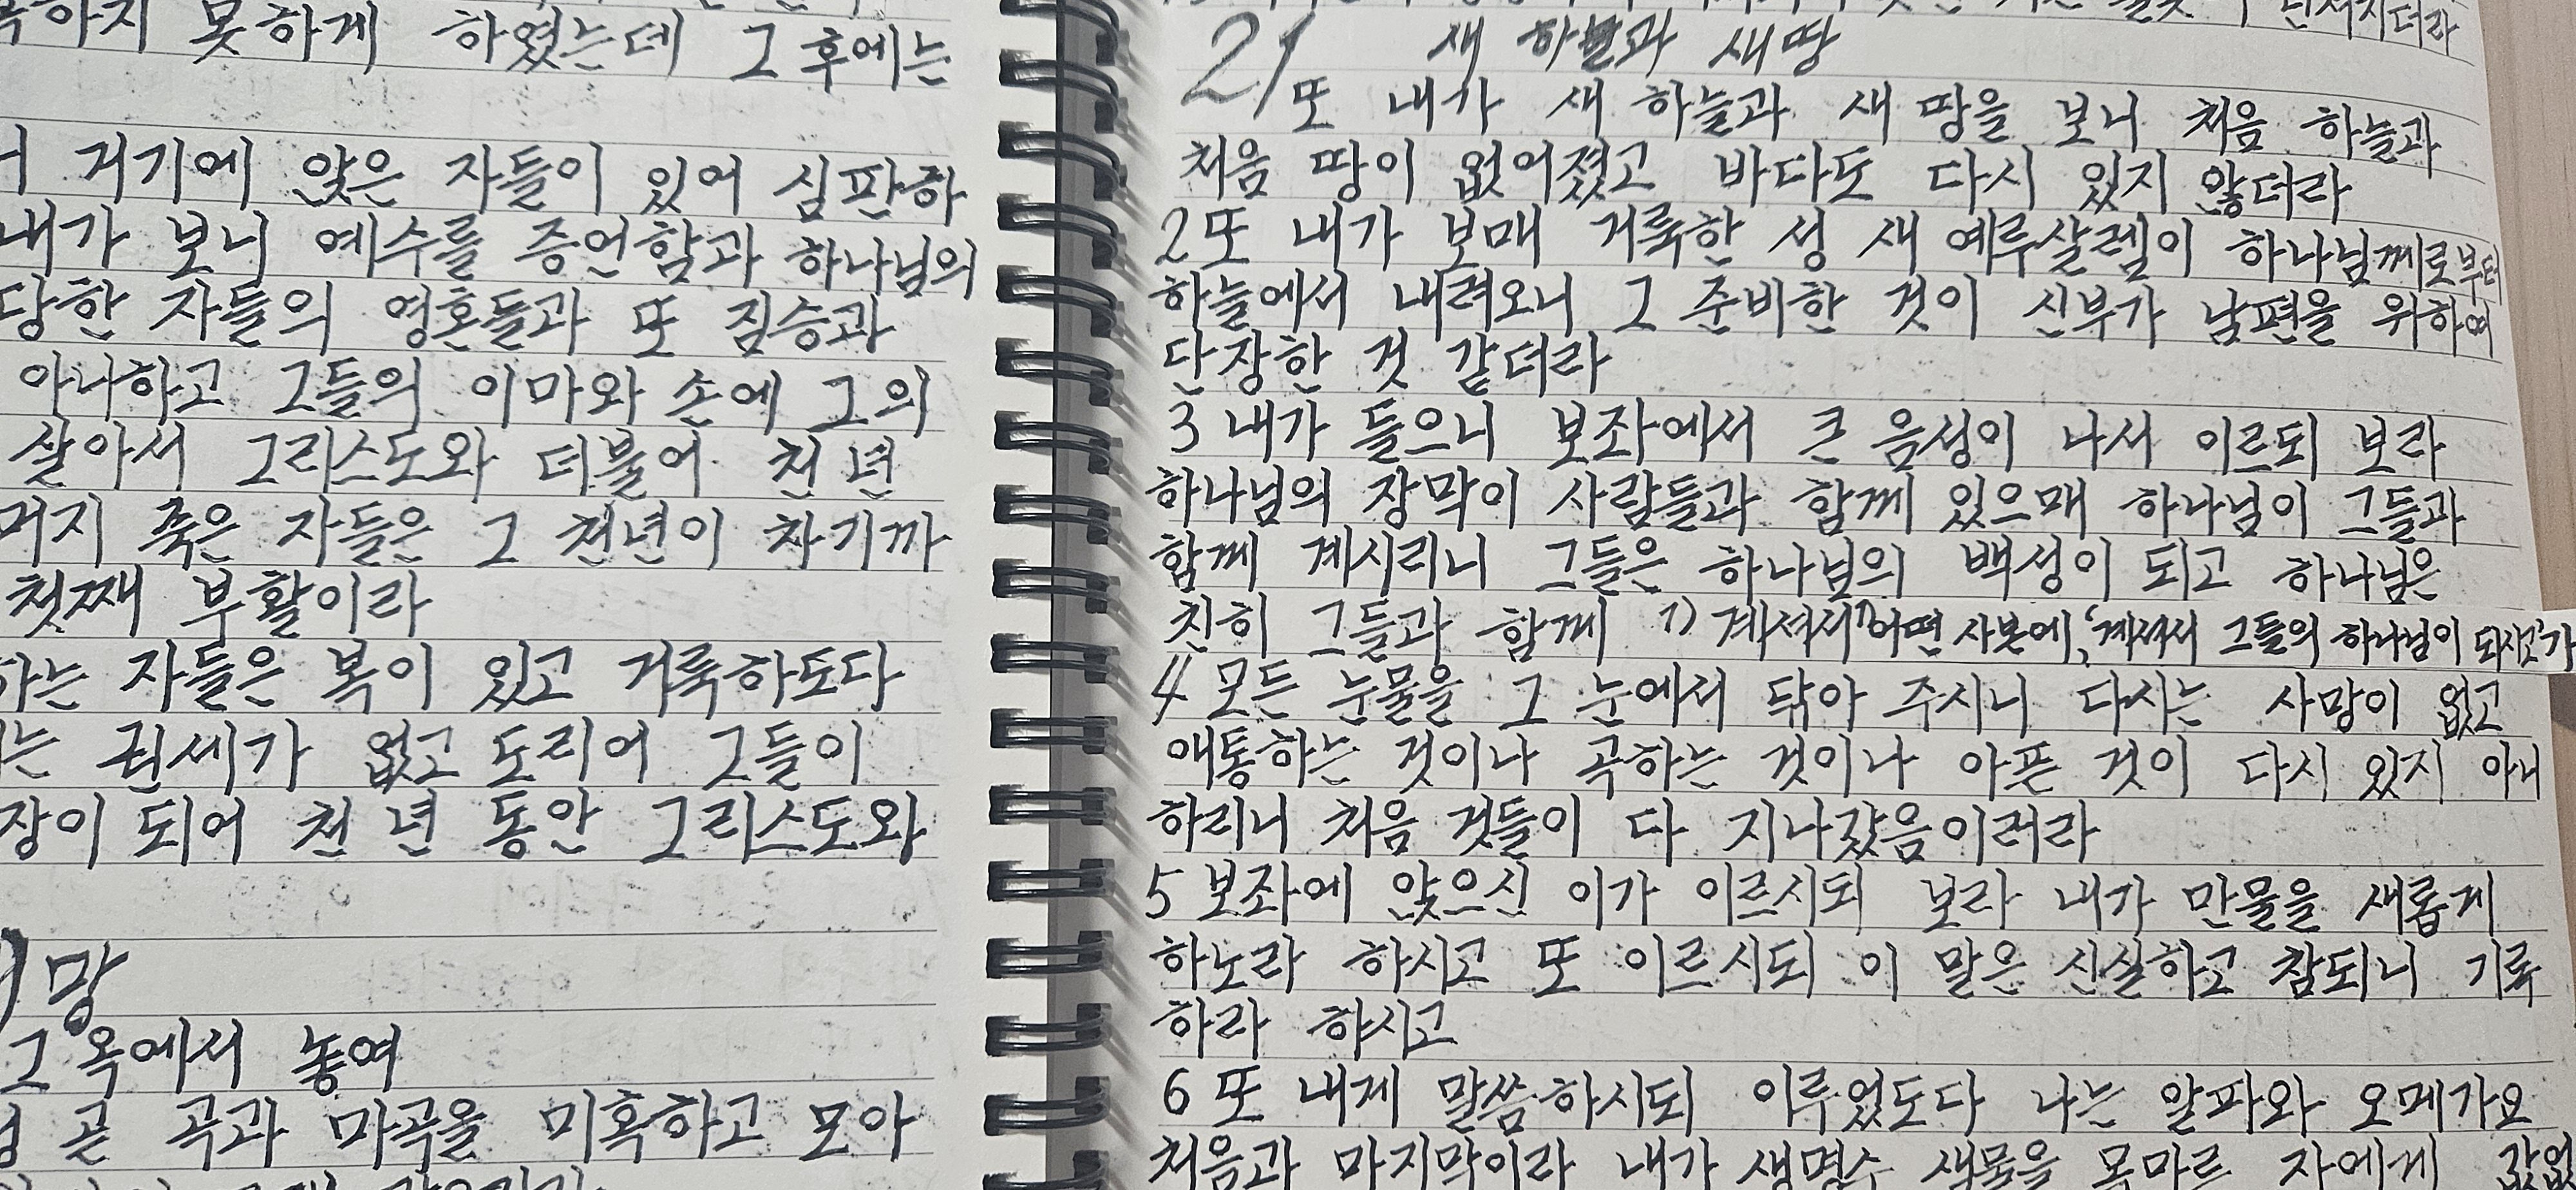 하지 못하게 하였는데 그 후에는
거기에 앉은 자들이 있어 심판하
내가 보니 예수를 증언함과 하나님의
당한 자들의 영혼들과 또 짐승과
아니하고 그들의 이마와 손에 그의
살아서 그리스도와 더불어 천 년
머지 죽은 자들은 그 천년이 차기까
첫째 부활이라
하는 자들은 복이 있고 거룩하도다
는 권세가 없고 도리어 그들이
장이 되어 천 년 동안 그리스도와
망
그 옥에서 놓여
곧 곡과 마곡을 미혹하고 모아
던져지더라
21 새 하늘과 새 땅
또 내가 새 하늘과 새 땅을 보니 처음 하늘과
처음 땅이 없어졌고 바다도 다시 있지 않더라
2 또 내가 보매 거룩한 성 새 예루살렘이 하나님께로부터
하늘에서 내려오니 그 준비한 것이 신부가 남편을 위하여
단장한 것 같더라
3 내가 들으니 보좌에서 큰 음성이 나서 이르되 보라
하나님의 장막이 사람들과 함께 있으매 하나님이 그들과
함께 계시리니 그들은 하나님의 백성이 되고 하나님은
친히 그들과 함께 1) 계셔서 1) 어떤 사본에, '계셔서 그들의 하나님이 되시고'가
4 모든 눈물을 그 눈에서 닦아 주시니 다시는 사망이 없고
애통하는 것이나 곡하는 것이나 아픈 것이 다시 있지 아니
하리니 처음 것들이 다 지나갔음이러라
5 보좌에 앉으신 이가 이르시되 보라 내가 만물을 새롭게
하노라 하시고 또 이르시되 이 말은 신실하고 참되니 기록
하라 하시고
6 또 내게 말씀하시되 이루었도다 나는 알파와 오메가요
처음과 마지막이라 내가 생명수 샘물을 목마른 자에게 값없